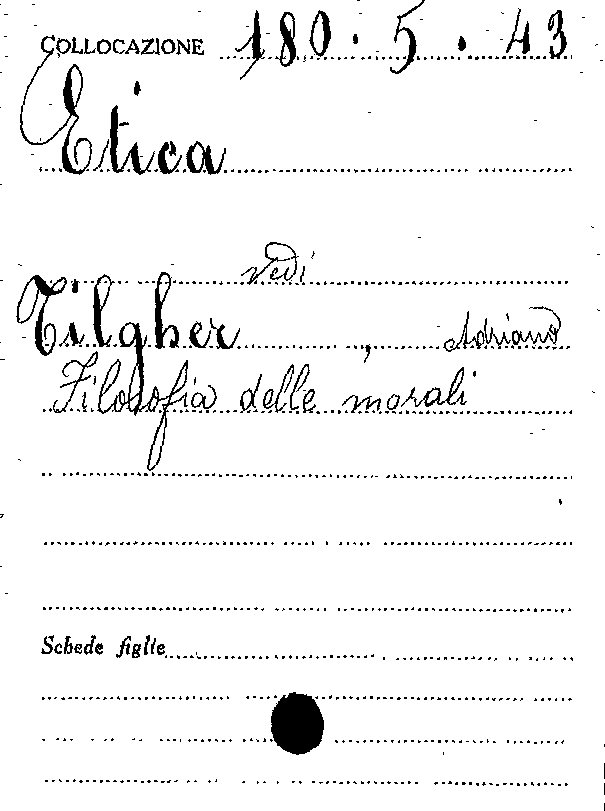 COLLOCAZIONE 180.5.43
Etica
vedi
Tilgher, Adriano
Filosofia delle morali
Schede figlie